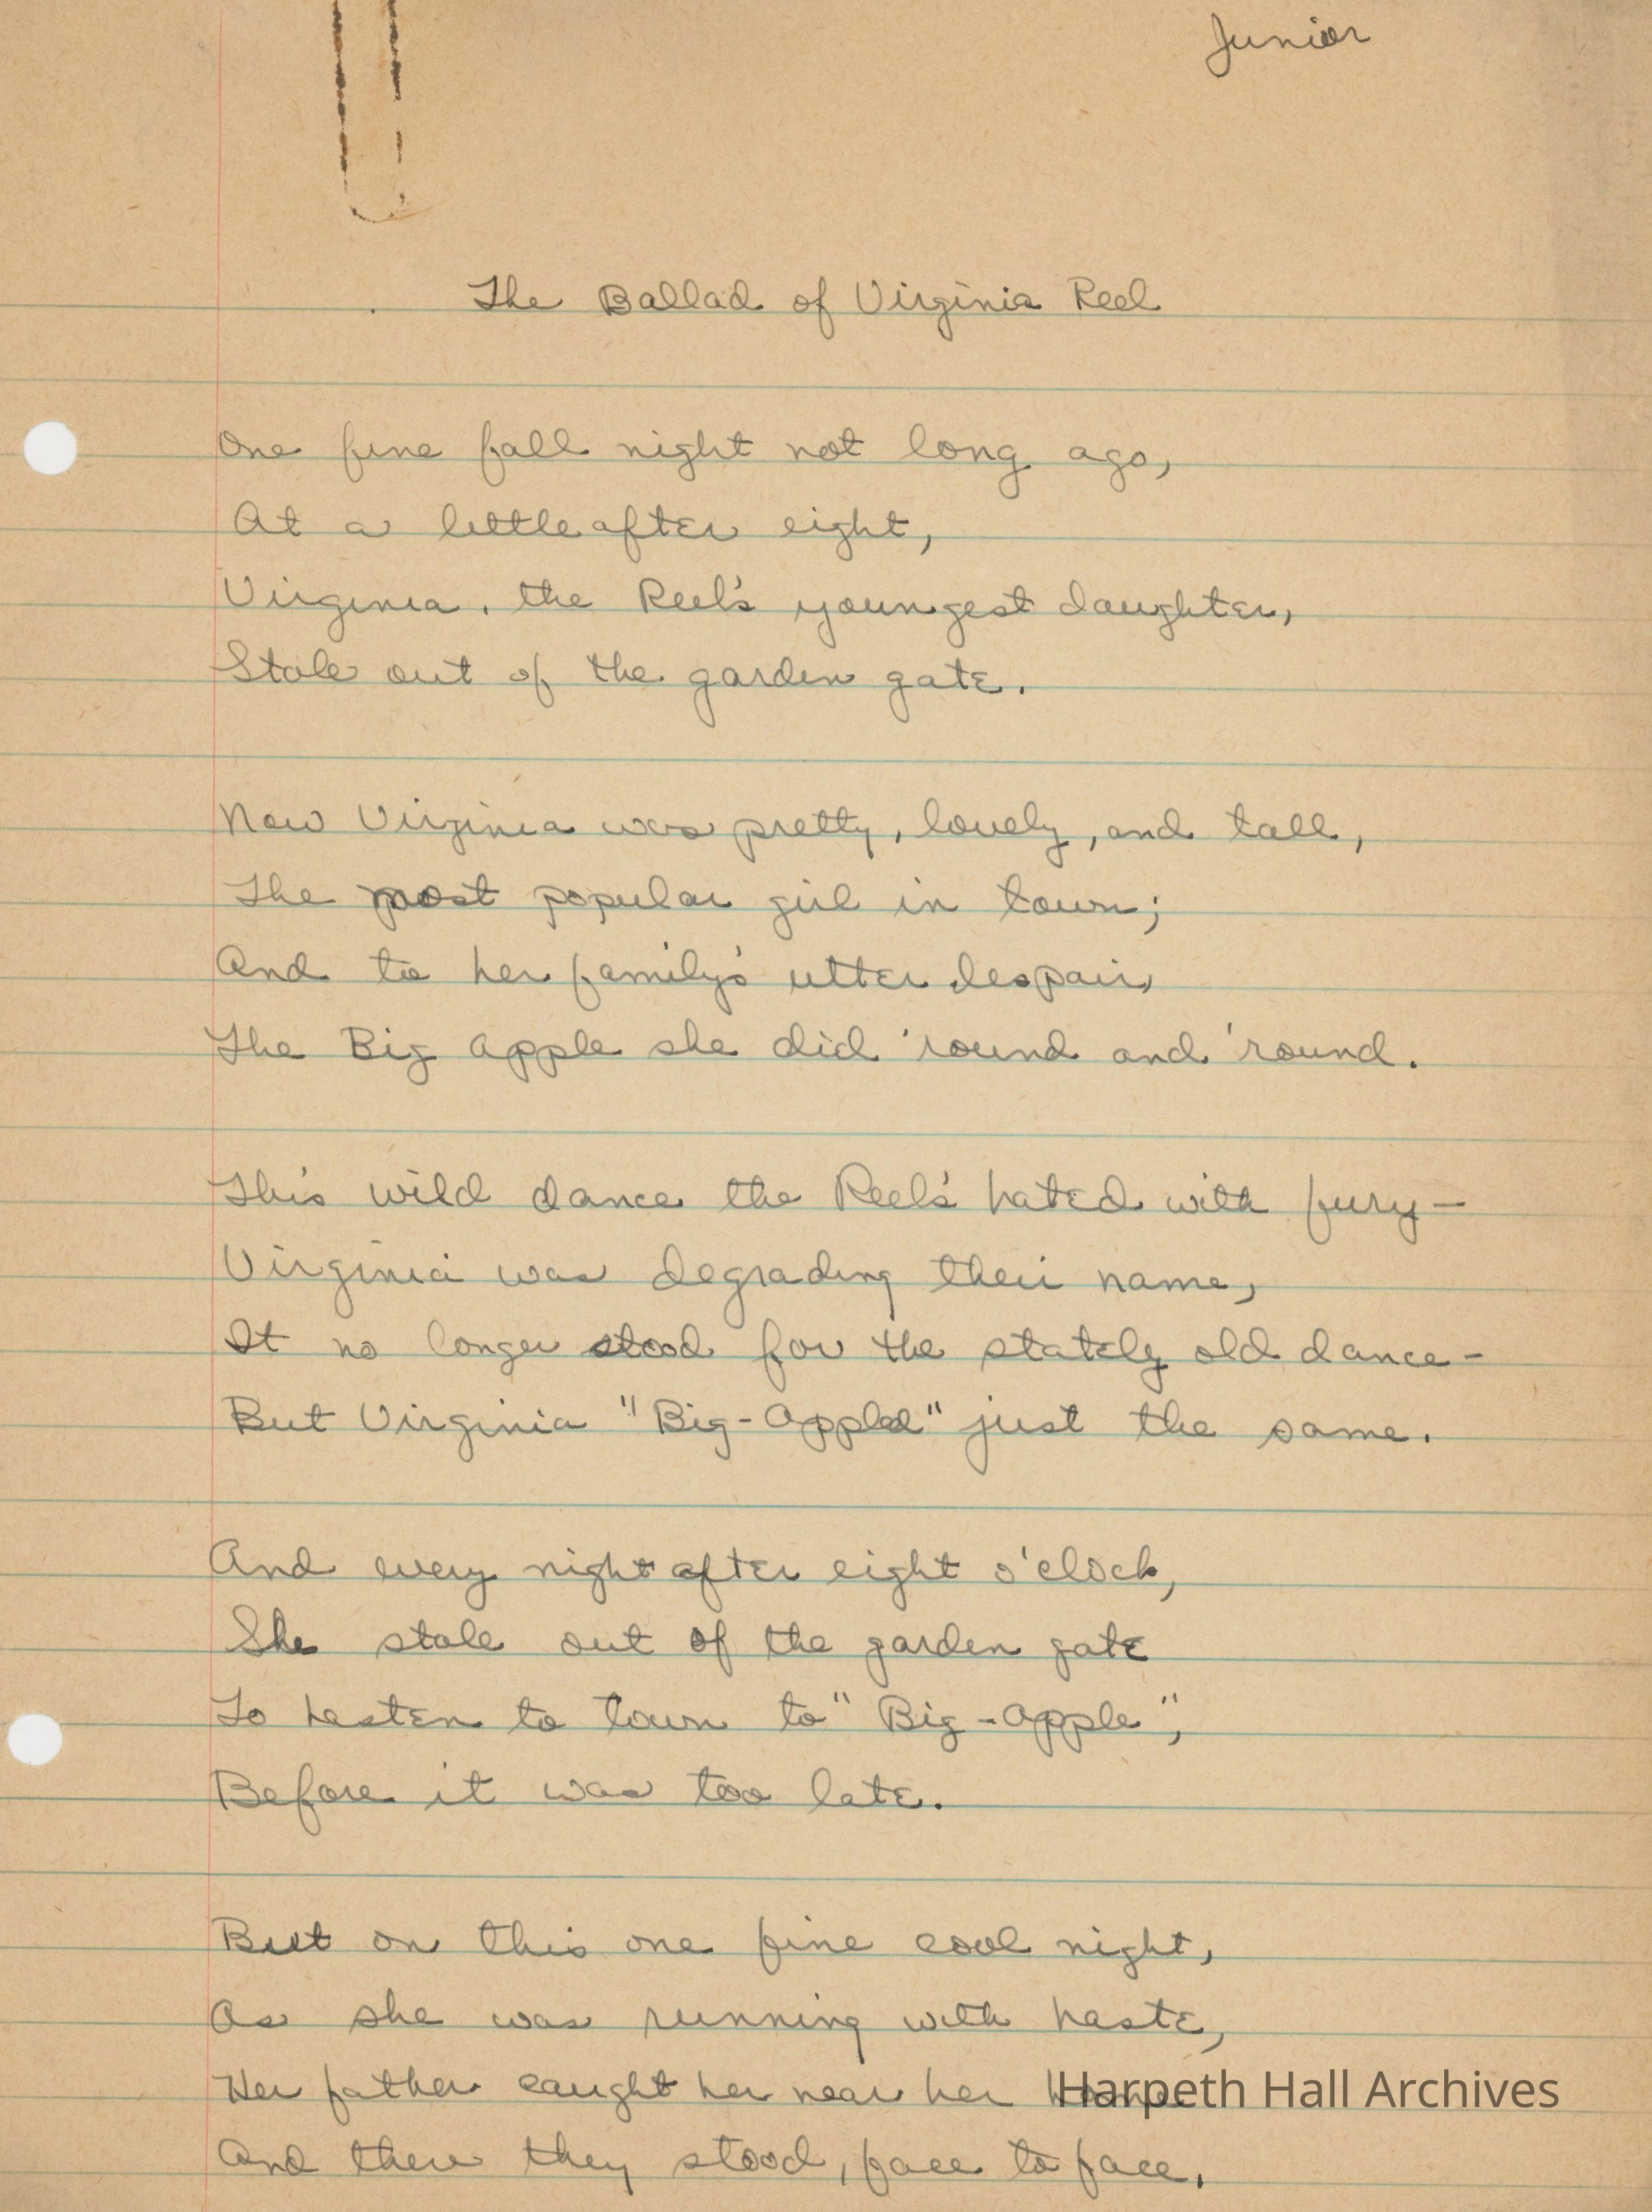 Junior
The Ballad of Virginia Reel
One fine fall night not long ago,
At a little after eight,
Virginia, the Reel's youngest daughter,
Stole out of the garden gate.
Now Virginia was pretty, lovely, and tall,
The most popular girl in town;
And to her family's utter despair,
The Big Apple she did 'round and 'round.
This wild dance the Reel's hated with fury—
Virginia was degrading their name,
It no longer stood for the stately old dance-
But Virginia "Big-Appled" just the same.
And every night after eight o'clock,
She stole out of the garden gate
To hasten to town to "Big-Apple",
Before it was too late.
But on this one fine cool night,
As she was running with haste,
Her father caught her near her home
And there they stood, face to face.
Harpeth Hall Archives